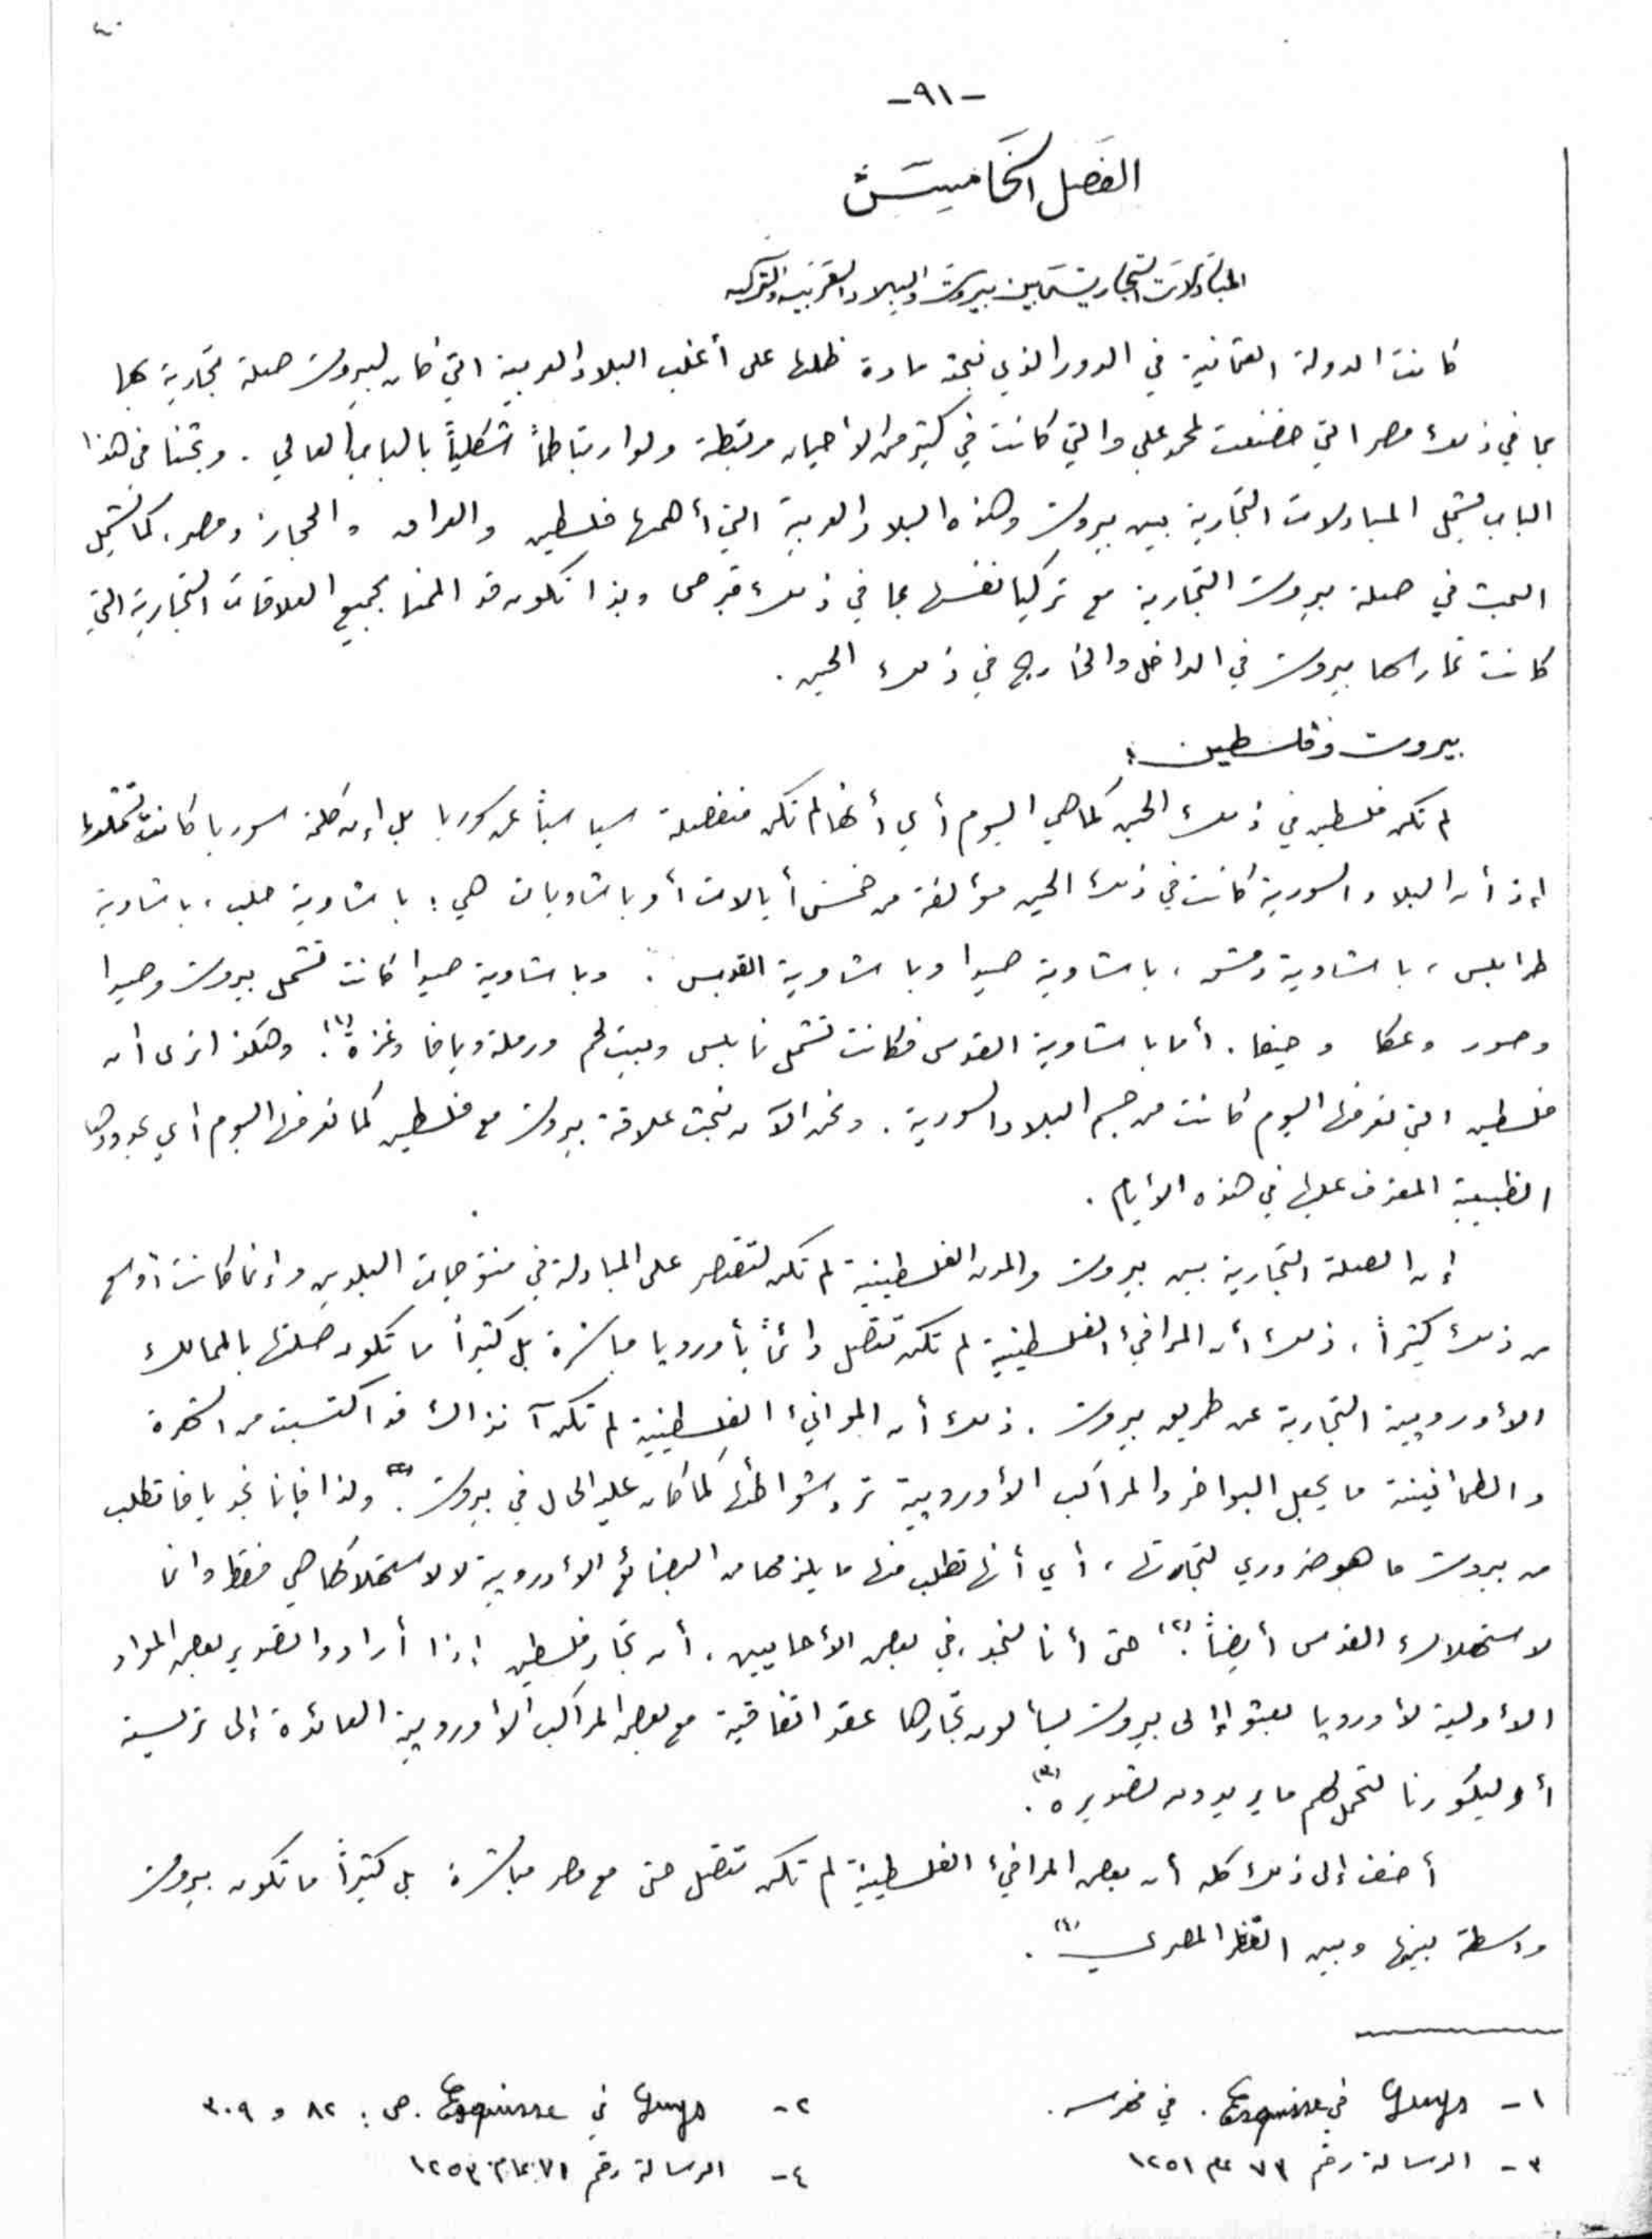 -٩١-
الفصل الخامس
المبادلات التجارية ما بين بيروت والبلاد العربية والتركية
كانت الدولة العثمانية في الدور الذي نبحثه مادة ظلها على أغلب البلاد العربية التي كان لبيروت صلة تجارية بها
بما في ذلك مصر التي خضعت لمحمد علي والتي كانت في كثير من الاحيان مرتبطة ولو ارتباطاً شكلياً بالباب العالي. وبحثنا في هذا
الباب يشمل المبادلات التجارية بين بيروت وهذه البلاد العربية التي أهمها فلسطين والعراق والحجاز ومصر. كما يشمل
البحث في صلة بيروت التجارية مع تركيا نفسها بما في ذلك قبرص وبذا نكون قد المحنا بجميع العلاقات التجارية التي
كانت تمارسها بيروت في الداخل والخارج في ذلك الحين.
بيروت وفلسطين:
لم تكن فلسطين في ذلك الحين كما هي اليوم أي أنها لم تكن منفصلة سياسياً عن سوريا بل إن كلمة سوريا كانت تشملها
إذ أن البلاد السورية كانت في ذلك الحين مؤلفة من خمس أيالات أو باشاويات هي: باشاوية حلب، باشاوية
طرابلس، باشاوية دمشق، باشاوية صيدا وباشاوية القدس. وباشاوية صيدا كانت تشمل بيروت وصيدا
وصور وعكا وحيفا. أما باشاوية القدس فكانت تشمل نابلس وبيت لحم ورملة ويافا وغزة (١). وهكذا نرى أن
فلسطين التي نعرفها اليوم كانت من جسم البلاد السورية. ونحن الآن نبحث علاقة بيروت مع فلسطين كما نعرفها اليوم أي بحدودها
الطبيعية المعترف عليها في هذه الأيام.
إن الصلة التجارية بين بيروت والمدن الفلسطينية لم تكن لتقتصر على المبادلة في منتوجات البلدين وإنما كانت أوسع
من ذلك كثيراً، ذلك أن المرافيء الفلسطينية لم تكن تتصل دائماً بأوروبا مباشرة بل كثيراً ما تكون صلتها بالممالك
الأوروبية التجارية عن طريق بيروت. ذلك أن الموانيء الفلسطينية لم تكن آنذاك قد اكتسبت من الشهرة
والطمأنينة ما يجعل البواخر والمراكب الأوروبية ترد شواطئها كما كان عليه الحال في بيروت. ولذا فإنا نجد يافا تطلب
من بيروت ما هو ضروري لتجارتها، أي أنها تطلب منها ما يلزمها من البضائع الأوروبية لا لاستهلاكها هي فقط وانما
لاستهلاك القدس أيضاً (٢). حتى أنا لنجد، في بعض الأحايين، أن تجار فلسطين إذا أرادوا تصدير بعض المواد
الأولية لأوروبا بعثوا إلى بيروت يسألون تجارها عقد اتفاقية مع بعض المراكب الأوروبية العائدة إلى تريستة
أو ليكورنا لتحمل لهم ما يريدون تصديره (٣).
أضف إلى ذلك كله أن بعض المرافيء الفلسطينية لم تكن تتصل حتى مع مصر مباشرة بل كثيراً ما تكون بيروت
واسطة بينها وبين القطر المصري (٤).
١- Guys في Esquisse. في فهرسه.
٢- Guys في Esquisse. ص: ٨٢ و ٣٠٩
٣- الرسالة رقم ٧٣ عام ١٢٥١
٤- الرسالة رقم ٧١ عام ١٢٥٣